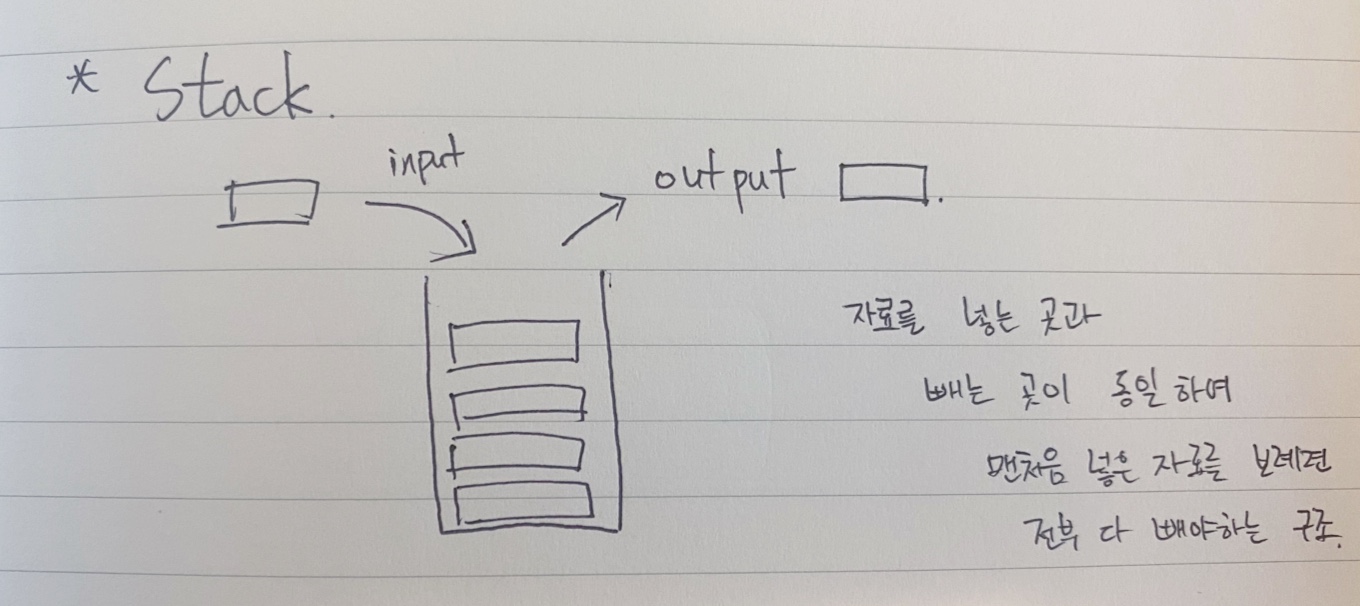 * Stack.
input
output
자료를 넣는 곳과
빼는 곳이 동일하여
맨처음 넣은 자료를 보례면
전부 다 빼야하는 구조.